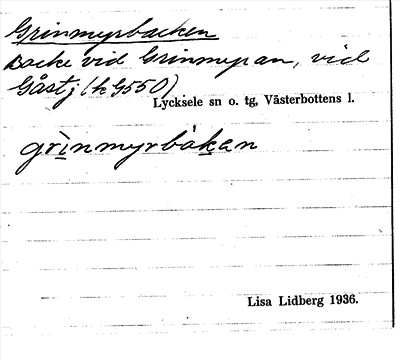 Grinmyrbacken
Backe vid Grinmyran, vid
Gåstj (h G550)
Lycksele sn o. tg, Västerbottens l.
grìnmyrbàkan
Lisa Lidberg 1936.